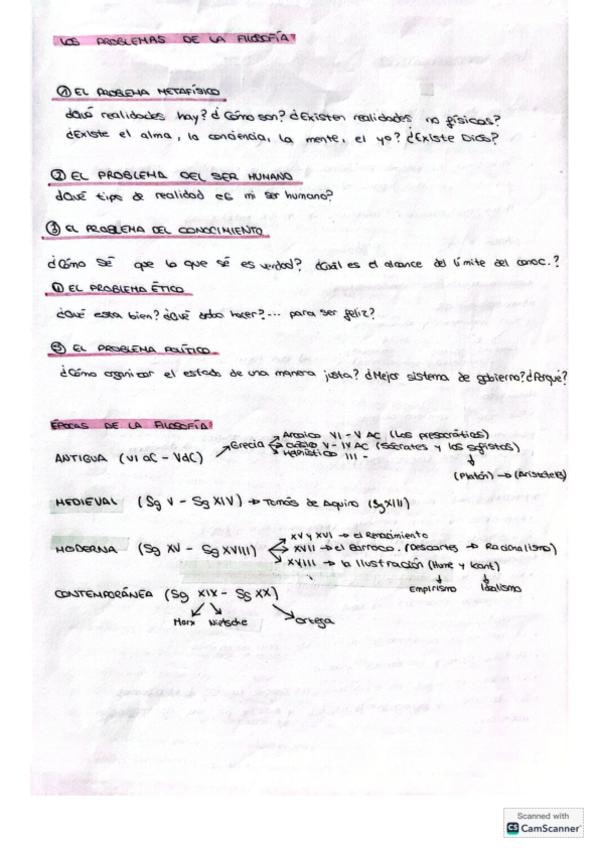 LOS PROBLEMAS DE LA FILOSOFÍA
① EL PROBLEMA METAFÍSICO
¿Qué realidades hay? ¿Cómo son? ¿Existen realidades no físicas?
¿Existe el alma, la conciencia, la mente, el yo? ¿Existe Dios?
② EL PROBLEMA DEL SER HUMANO
¿Qué tipo de realidad es mi ser humano?
③ EL PROBLEMA DEL CONOCIMIENTO
¿Cómo sé que lo que sé es verdad? ¿Cuál es el alcance del límite del conoc.?
④ EL PROBLEMA ÉTICO
¿Qué esta bien? ¿Qué debo hacer?... para ser feliz?
⑤ EL PROBLEMA POLÍTICO
¿Cómo organizar el estado de una manera justa? ¿Mejor sistema de gobierno? ¿Porqué?
ÉPOCAS DE LA FILOSOFÍA
Arcaico VI - V AC (Los presocráticos)
ANTIGUA (VI aC - VdC) → Grecia → Clásico V - IV AC (Sócrates y los sofistas)
Helenístico III -
(Platón) → (Aristóteles)
MEDIEVAL (Sg V - Sg XIV) → Tomás de Aquino (Sg XIII)
XV y XVI → el Renacimiento
MODERNA (Sg XV - Sg XVIII) → XVII → el Barroco. (Descartes → Racionalismo)
XVIII → la Ilustración (Hume y Kant)
Empirismo Idealismo
CONTEMPORÁNEA (Sg XIX - Sg XX)
Marx Nietsche Ortega
Scanned with
CS CamScanner